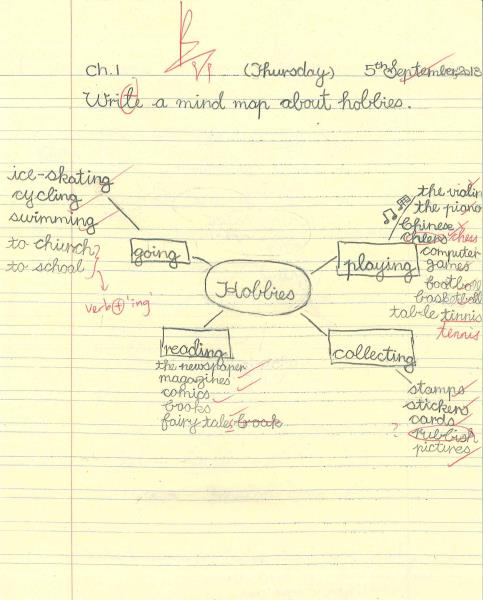 ch.1 (Thursday) 5th September, 2013
Write a mind map about hobbies.
ice-skating
cycling
swimming
to church
to school
verb + 'ing'
going
the violin
the piano
Chinese
cheers chess
computer
games
football
basketball
table tinnis
tennis
playing
Hobbies
reading
the newspaper
magazines
comics
books
fairy tales book
collecting
stamps
stickers
cards
? rubbish
pictures